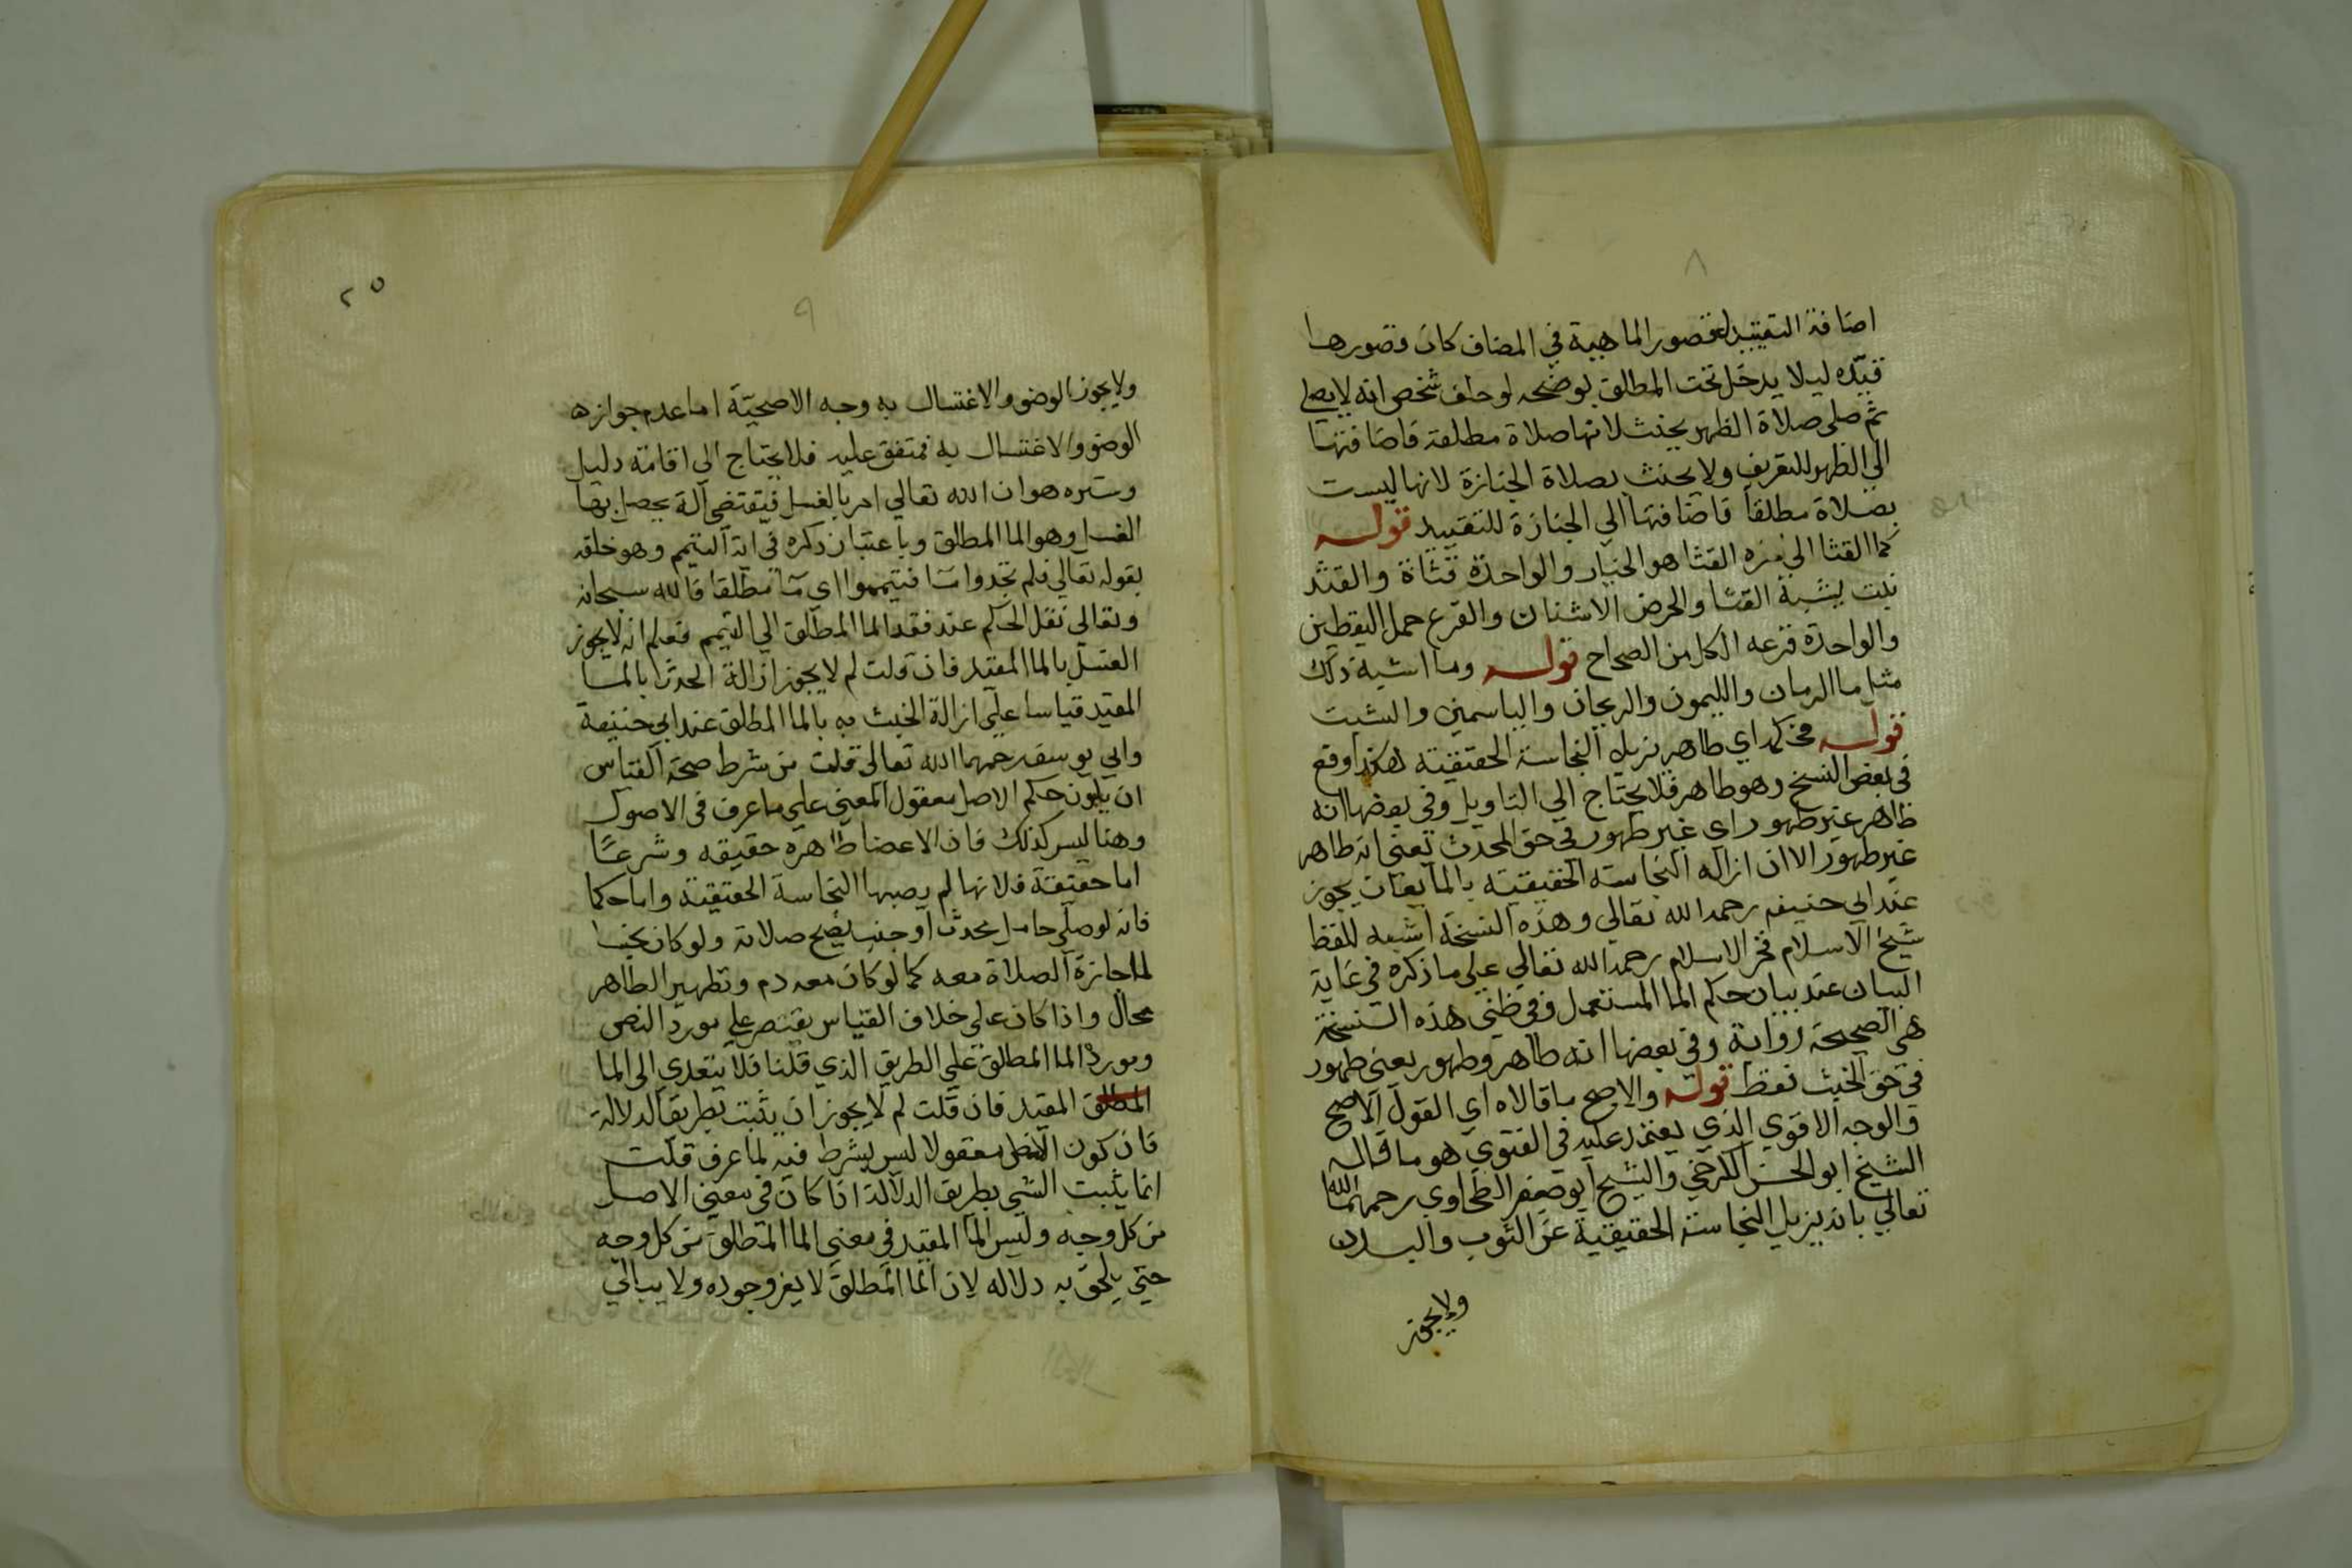 ٨
اضافة التقييد لقصور الماهية في المضاف كان وقصورها
قيده ليلا يدخل تحت المطلق يوضحه لو حلف شخص انه لا يصلي
ثم صلى صلاة الظهر يحنث لانها صلاة مطلقة فاضافتها
الي الظهر للتعريف ولا يحنث بصلاة الجنازة لانها ليست
بصلاة مطلقا فاضافتها الي الجنازة للتقييد قوله
كما القثا الي القثا هو الخيار والواحدة قثاة والقثد
نبت يشبة القثا والحرض الاشنان والقرع حمل اليقطين
والواحدة قرعه الكل من الصحاح قوله وما اشبة ذلك
مثل ما الرمان والليمون والريحان والياسمين والشبت
قوله اي طاهر يزيل النجاسة الحقيقية هكذا وقع
في بعض النسخ وهو طاهر فلا يحتاج الي التاويل وفي بعضها انه
طاهر غير طهور اي غير طهور في حق المحدث يعني انه طاهر
غير طهور الا ان ازاله النجاسة الحقيقية بالمايعات يجوز
عند ابي حنيفه رحمه الله تعالي وهذه النسخة اشبه للفظ
شيخ الاسلام فخر الاسلام رحمه الله تعالي علي ما ذكره في غاية
البيان عند بيان حكم الما المستعمل وفي ظني هذه النسخة
هي الصحيحة رواية وفي بعضها انه طاهر وطهور يعني طهور
في حق الخبث فقط قوله والاصح ما قالاه اي القول الاصح
والوجه الاقوي الذي يعتمد عليه في الفتوي هو ما قاله
الشيخ ابو الحسن الكرخي والشيخ ابو جعفر الطحاوي رحمهما الله
تعالي بانه يزيل النجاسة الحقيقية عن الثوب والبدن
ولا يجوز
٢٥
٩
ولا يجوز الوضو والاغتسال به وجه الاصحية اما عدم جوازه
الوضو والاغتسال به فمتفق عليه فلا يحتاج الي اقامة دليل
وسره هو ان الله تعالي امر بالغسل فيقتضي آلة يحصل بها
الغسل وهو الما المطلق وباعتبار ذكره في اية التيمم وهو خلقه
بقوله تعالي فلم تجدوا مآ فتيمموا اي مآ مطلقا فالله سبحانه
وتعالى نقل الحكم عند فقد الما المطلق الي التيمم فعلم انه لا يجوز
الغسل بالما المقيد فان قلت لم لا يجوز ازالة الحدث بالما
المقيد قياسا علي ازالة الخبث به بالما المطلق عند ابي حنيفة
وابي يوسف رحمهما الله تعالى قلت من شرط صحة القياس
ان يكون حكم الاصل معقول المعني علي ما عرف في الاصول
وهنا ليس كذلك فان الاعضا طاهره حقيقه وشرعا
اما حقيقة فلانها لم يصبها النجاسة الحقيقية واما حكما
فانه لو صلي حامل محدث او جنب يصح صلاته ولو كان نجسا
لما جازة الصلاة معه كما لو كان معه دم وتطهير الطاهر
محال واذا كان علي خلاف القياس يقتصر علي مورد النص
ومورد الما المطلق علي الطريق الذي قلنا فلا يتعدي الى الما
المطلق المقيد فان قلت لم لا يجوز ان يثبت بطريق الدلالة
فان كون معقولا ليس بشرط فيه لما عرف قلت
انما يثبت الشي بطريق الدلالة اذا كان في معني الاصل
من كل وجه وليس الما المقيد في معني الما المطلق من كل وجه
حتي يلحق به دلاله لان الما المطلق لا يعز وجوده ولا يبالي